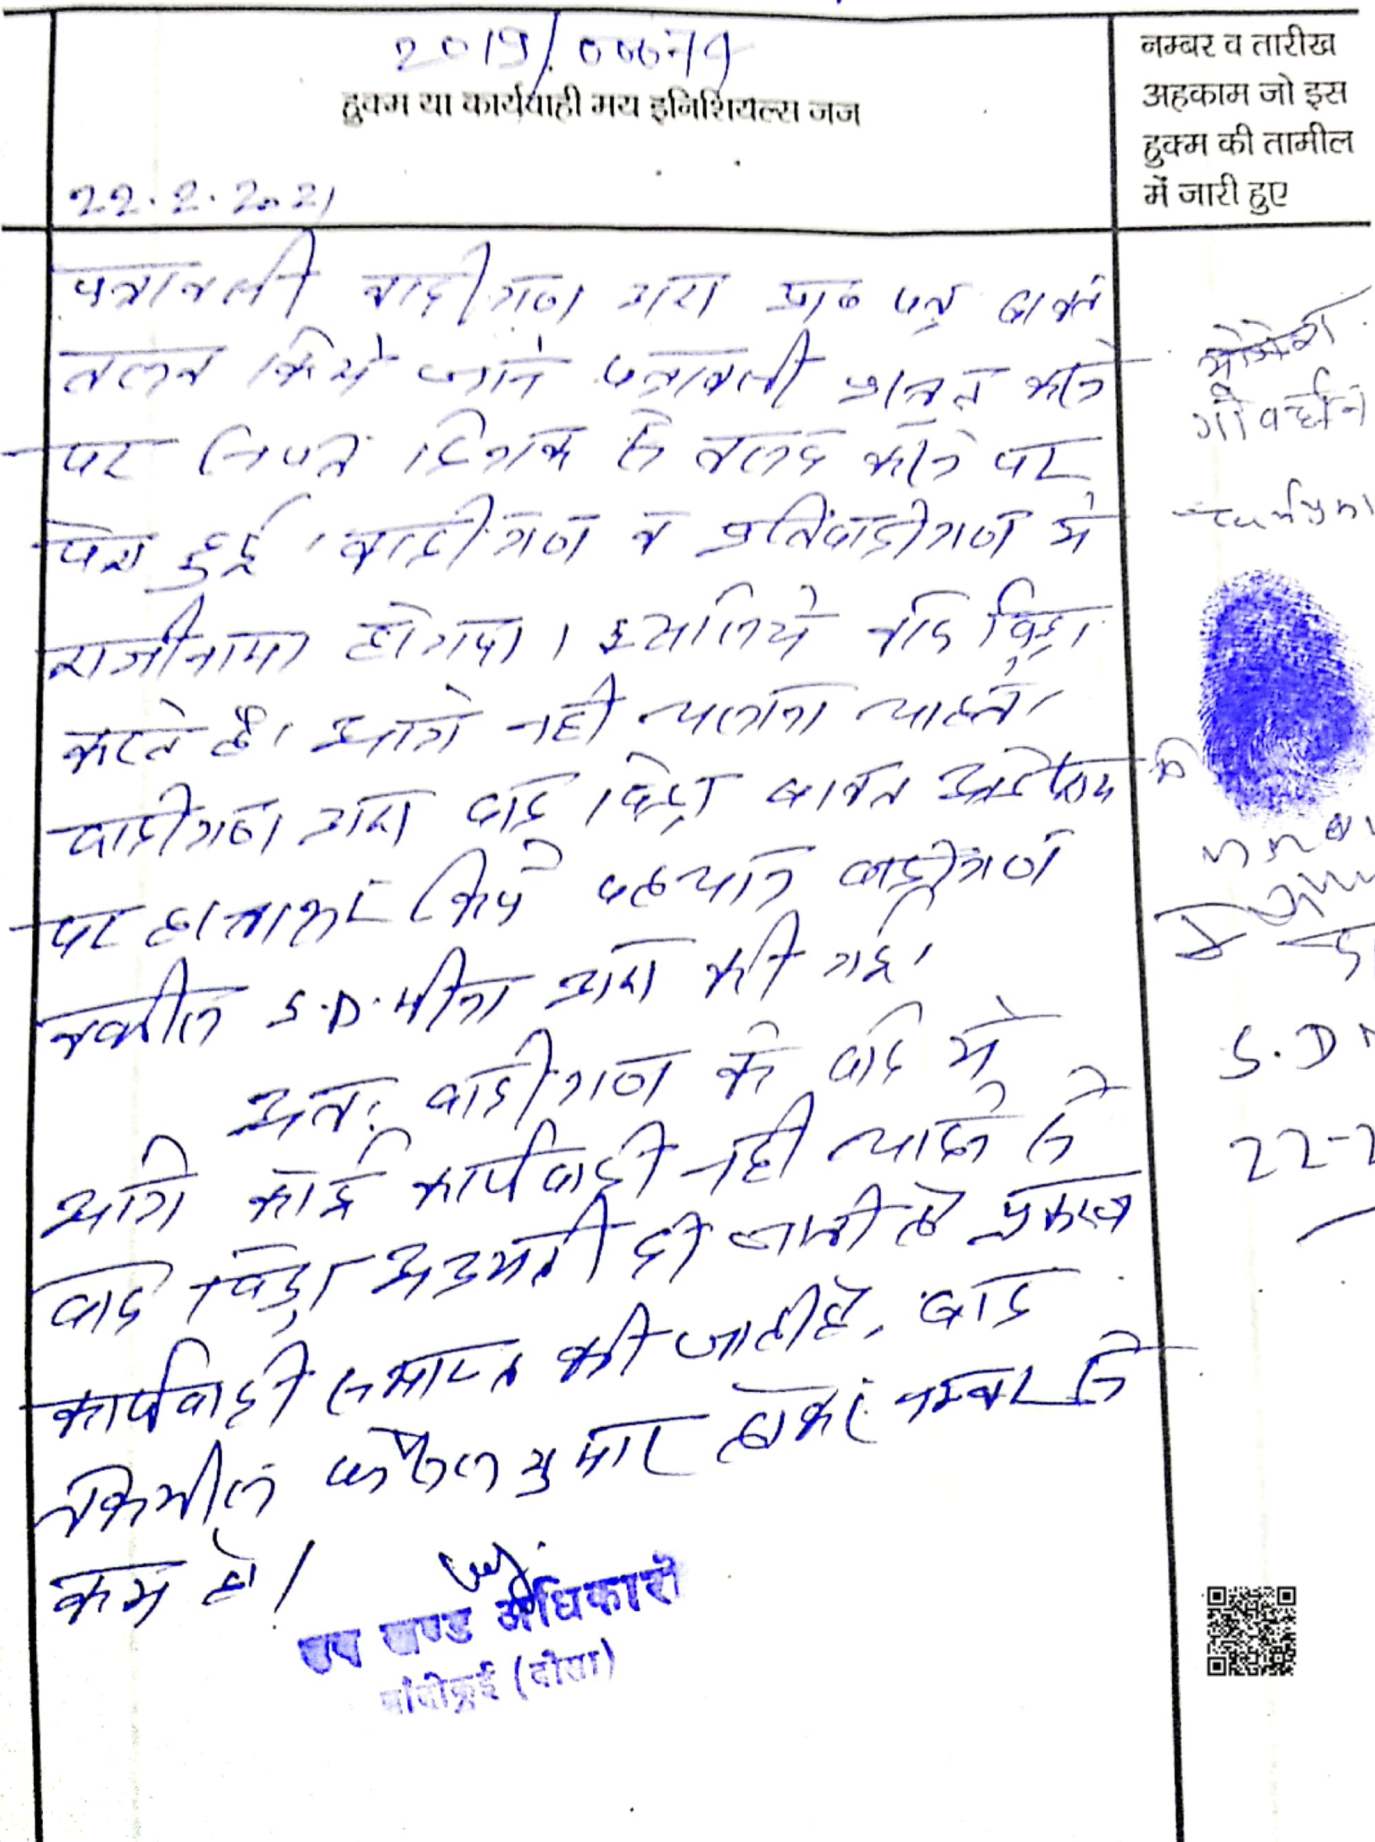 2019/00679
हुक्म या कार्यवाही मय इनिशियल्स जज
नम्बर व तारीख
अहकाम जो इस
हुक्म की तामील
में जारी हुए
22.2.2021
पत्रावली वादीगण द्वारा प्रा० पत्र बाबत
तलब किये जाने पत्रावली प्रस्तुत करने
पर नियत दिनांक से तलब करने पर
पेश हुई। वादीगण व प्रतिवादीगण में
राजीनामा होगया। इसलिये वाद विड्रा
करते है। आगे नही चलाना चाहते।
वादीगण द्वारा वाद विड्रा बाबत आदेशिका
पर हस्ताक्षर किये पहचान वादीगण
वकील S.D. मीना द्वारा की गई।
अतः वादीगण के वाद में
आगे कोई कार्यवाही नही चाहने से
वाद विड्रा अनुमती दी जाती है प्रकरण
कार्यवाही समाप्त की जाती है, बाद
तकमील फैसल शुमार होकर नम्बर से
कम हो।
उप खण्ड अधिकारी
बाँदीकुई (दौसा)
गोवर्धन
S.D
22-2